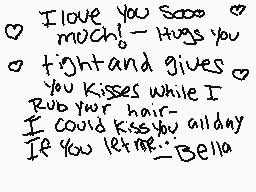 I love you sooo
much! - Hugs you
tight and gives
you kisses while I
Rub your hair -
I could kiss you all day
If you let me... - Bella